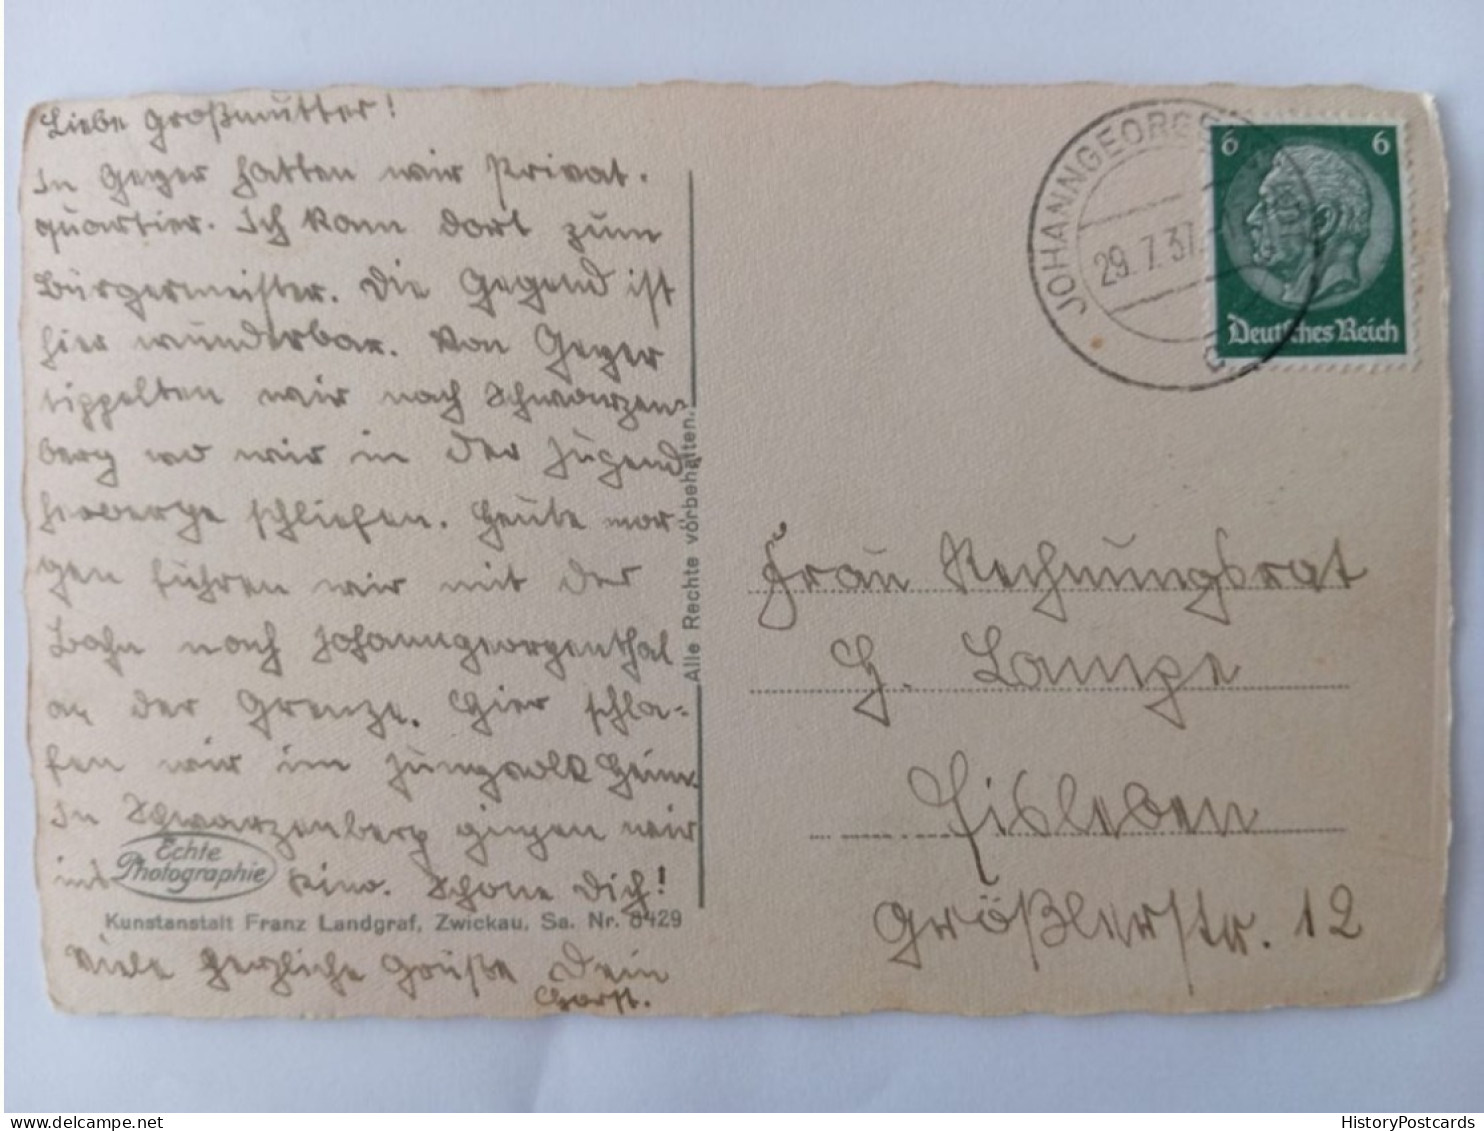 Liebe Großmutter!
In Geyer hatten wir Privat-
quartier. Ich kam dort zum
Bürgermeister. Die Gegend ist
hier wunderbar. Von Geyer
tippelten wir nach Schwarzen-
berg wo wir in der Jugend-
herberge schliefen. Heute mor-
gen fuhren wir mit der
Bahn nach Johanngeorgenthal
an der Grenze. Hier schla-
fen wir im Jungvolk Heim.
In Schwarzenberg gingen wir
ins Kino. Schone Dich!
Viele herzliche Grüße Dein
Horst.
Echte
Photographie
Kunstanstalt Franz Landgraf, Zwickau, Sa. Nr. 8429
Alle Rechte vorbehalten.
JOHANNGEORGS
29.7.37
6 6
Deutsches Reich
Frau Rechnungsrat
H. Lampe
Eisleben
Größlerstr. 12
www.delcampe.net
HistoryPostcards